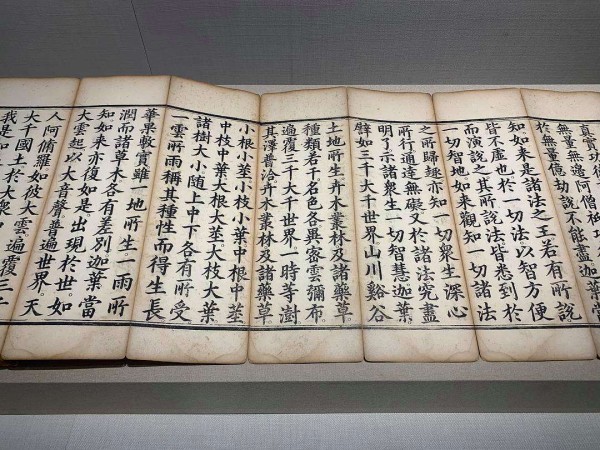 真實功
無量無邊阿僧祇功
於無量億劫說不能盡迦葉當
知如來是諸法之王若有所說
皆不虛也於一切法以智方便
而演說之其所說法皆悉到於
一切智地如來觀知一切諸法
之所歸趣亦知一切眾生深心
所行通達無礙又於諸法究盡
明了示諸眾生一切智慧迦葉
譬如三千大千世界山川谿谷
土地所生卉木叢林及諸藥草
種類若干名色各異密雲彌布
遍覆三千大千世界一時等澍
其澤普洽卉木叢林及諸藥草
小根小莖小枝小葉中根中莖
中枝中葉大根大莖大枝大葉
諸樹大小隨上中下各有所受
一雲所雨稱其種性而得生長
華果敷實雖一地所生一雨所
潤而諸草木各有差別迦葉當
知如來亦復如是出現於世如
大雲起以大音聲普遍世界天
人阿脩羅如彼大雲遍覆三千
大千國土於大眾中
我是如